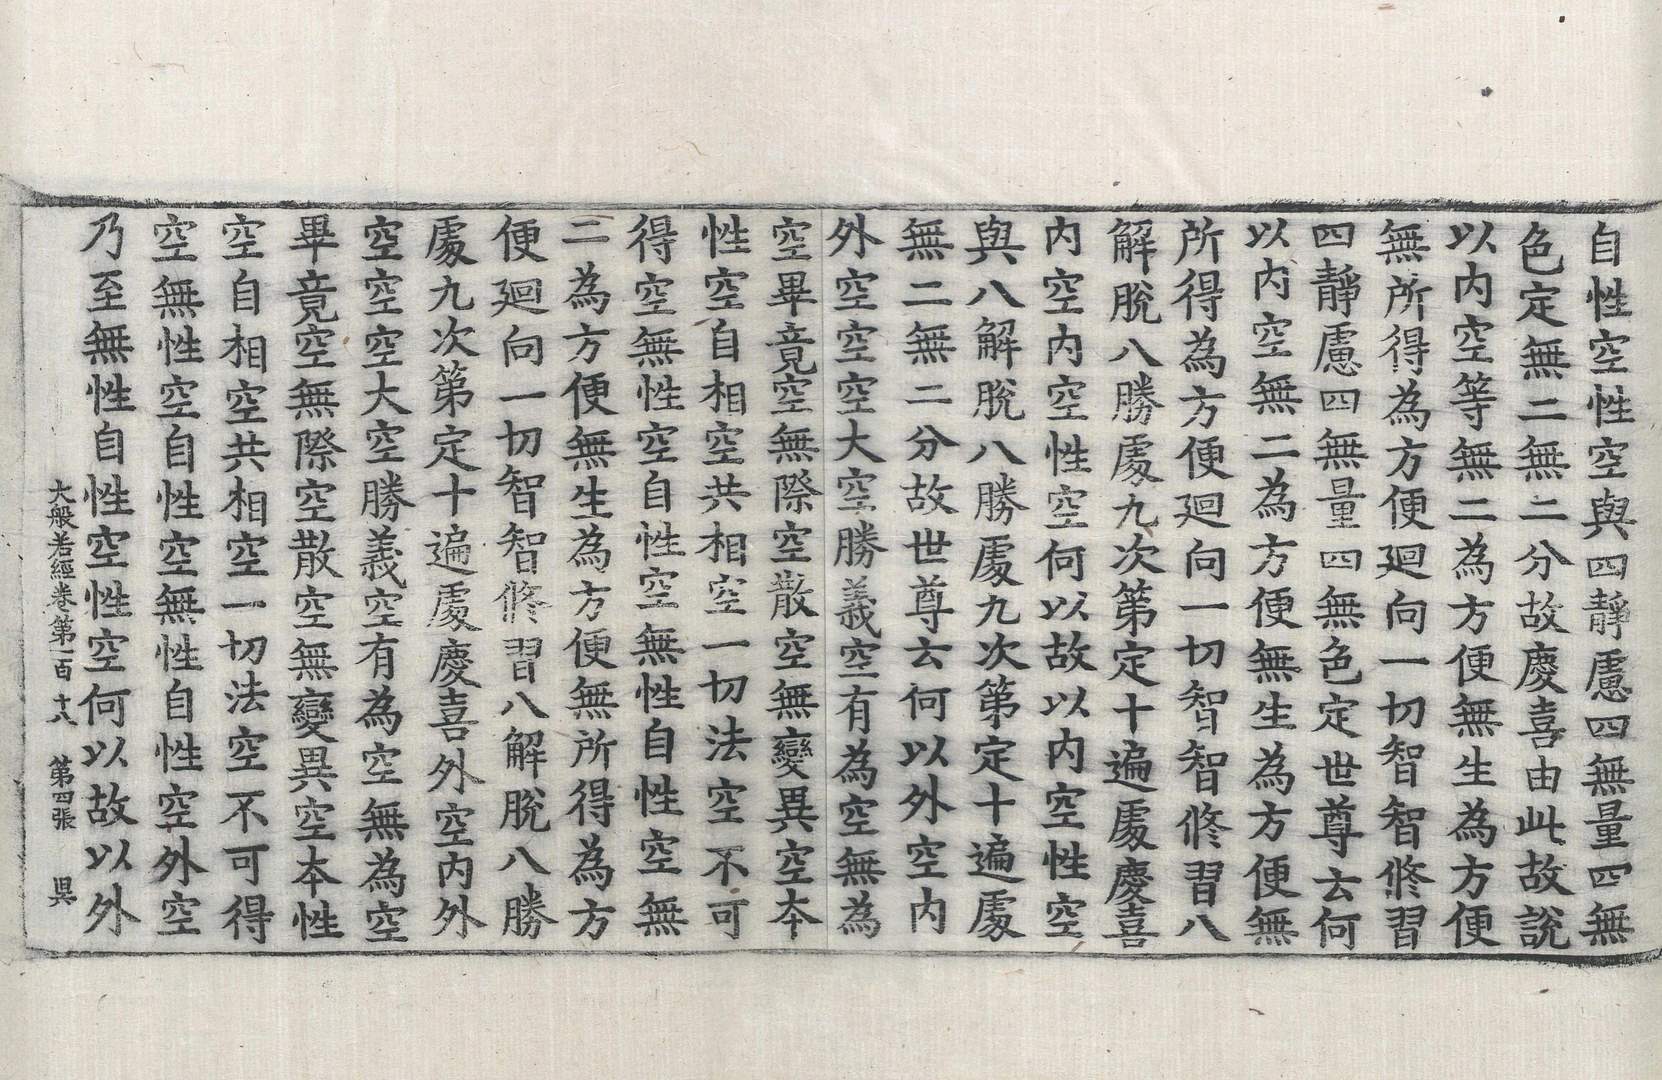 自性空性空與四靜慮四無量四無
色定無二無二分故慶喜由此故說
以內空等無二為方便無生為方便
無所得為方便迴向一切智智修習
四靜慮四無量四無色定世尊云何
以內空無二為方便無生為方便無
所得為方便迴向一切智智修習八
解脫八勝處九次第定十遍處慶喜
內空內空性空何以故以內空性空
與八解脫八勝處九次第定十遍處
無二無二分故世尊云何以外空內
外空空空大空勝義空有為空無為
空畢竟空無際空散空無變異空本
性空自相空共相空一切法空不可
得空無性空自性空無性自性空無
二為方便無生為方便無所得為方
便迴向一切智智修習八解脫八勝
處九次第定十遍處慶喜外空內外
空空空大空勝義空有為空無為空
畢竟空無際空散空無變異空本性
空自相空共相空一切法空不可得
空無性空自性空無性自性空外空
乃至無性自性空性空何以故以外
大般若經卷第一百十八 第四張 異